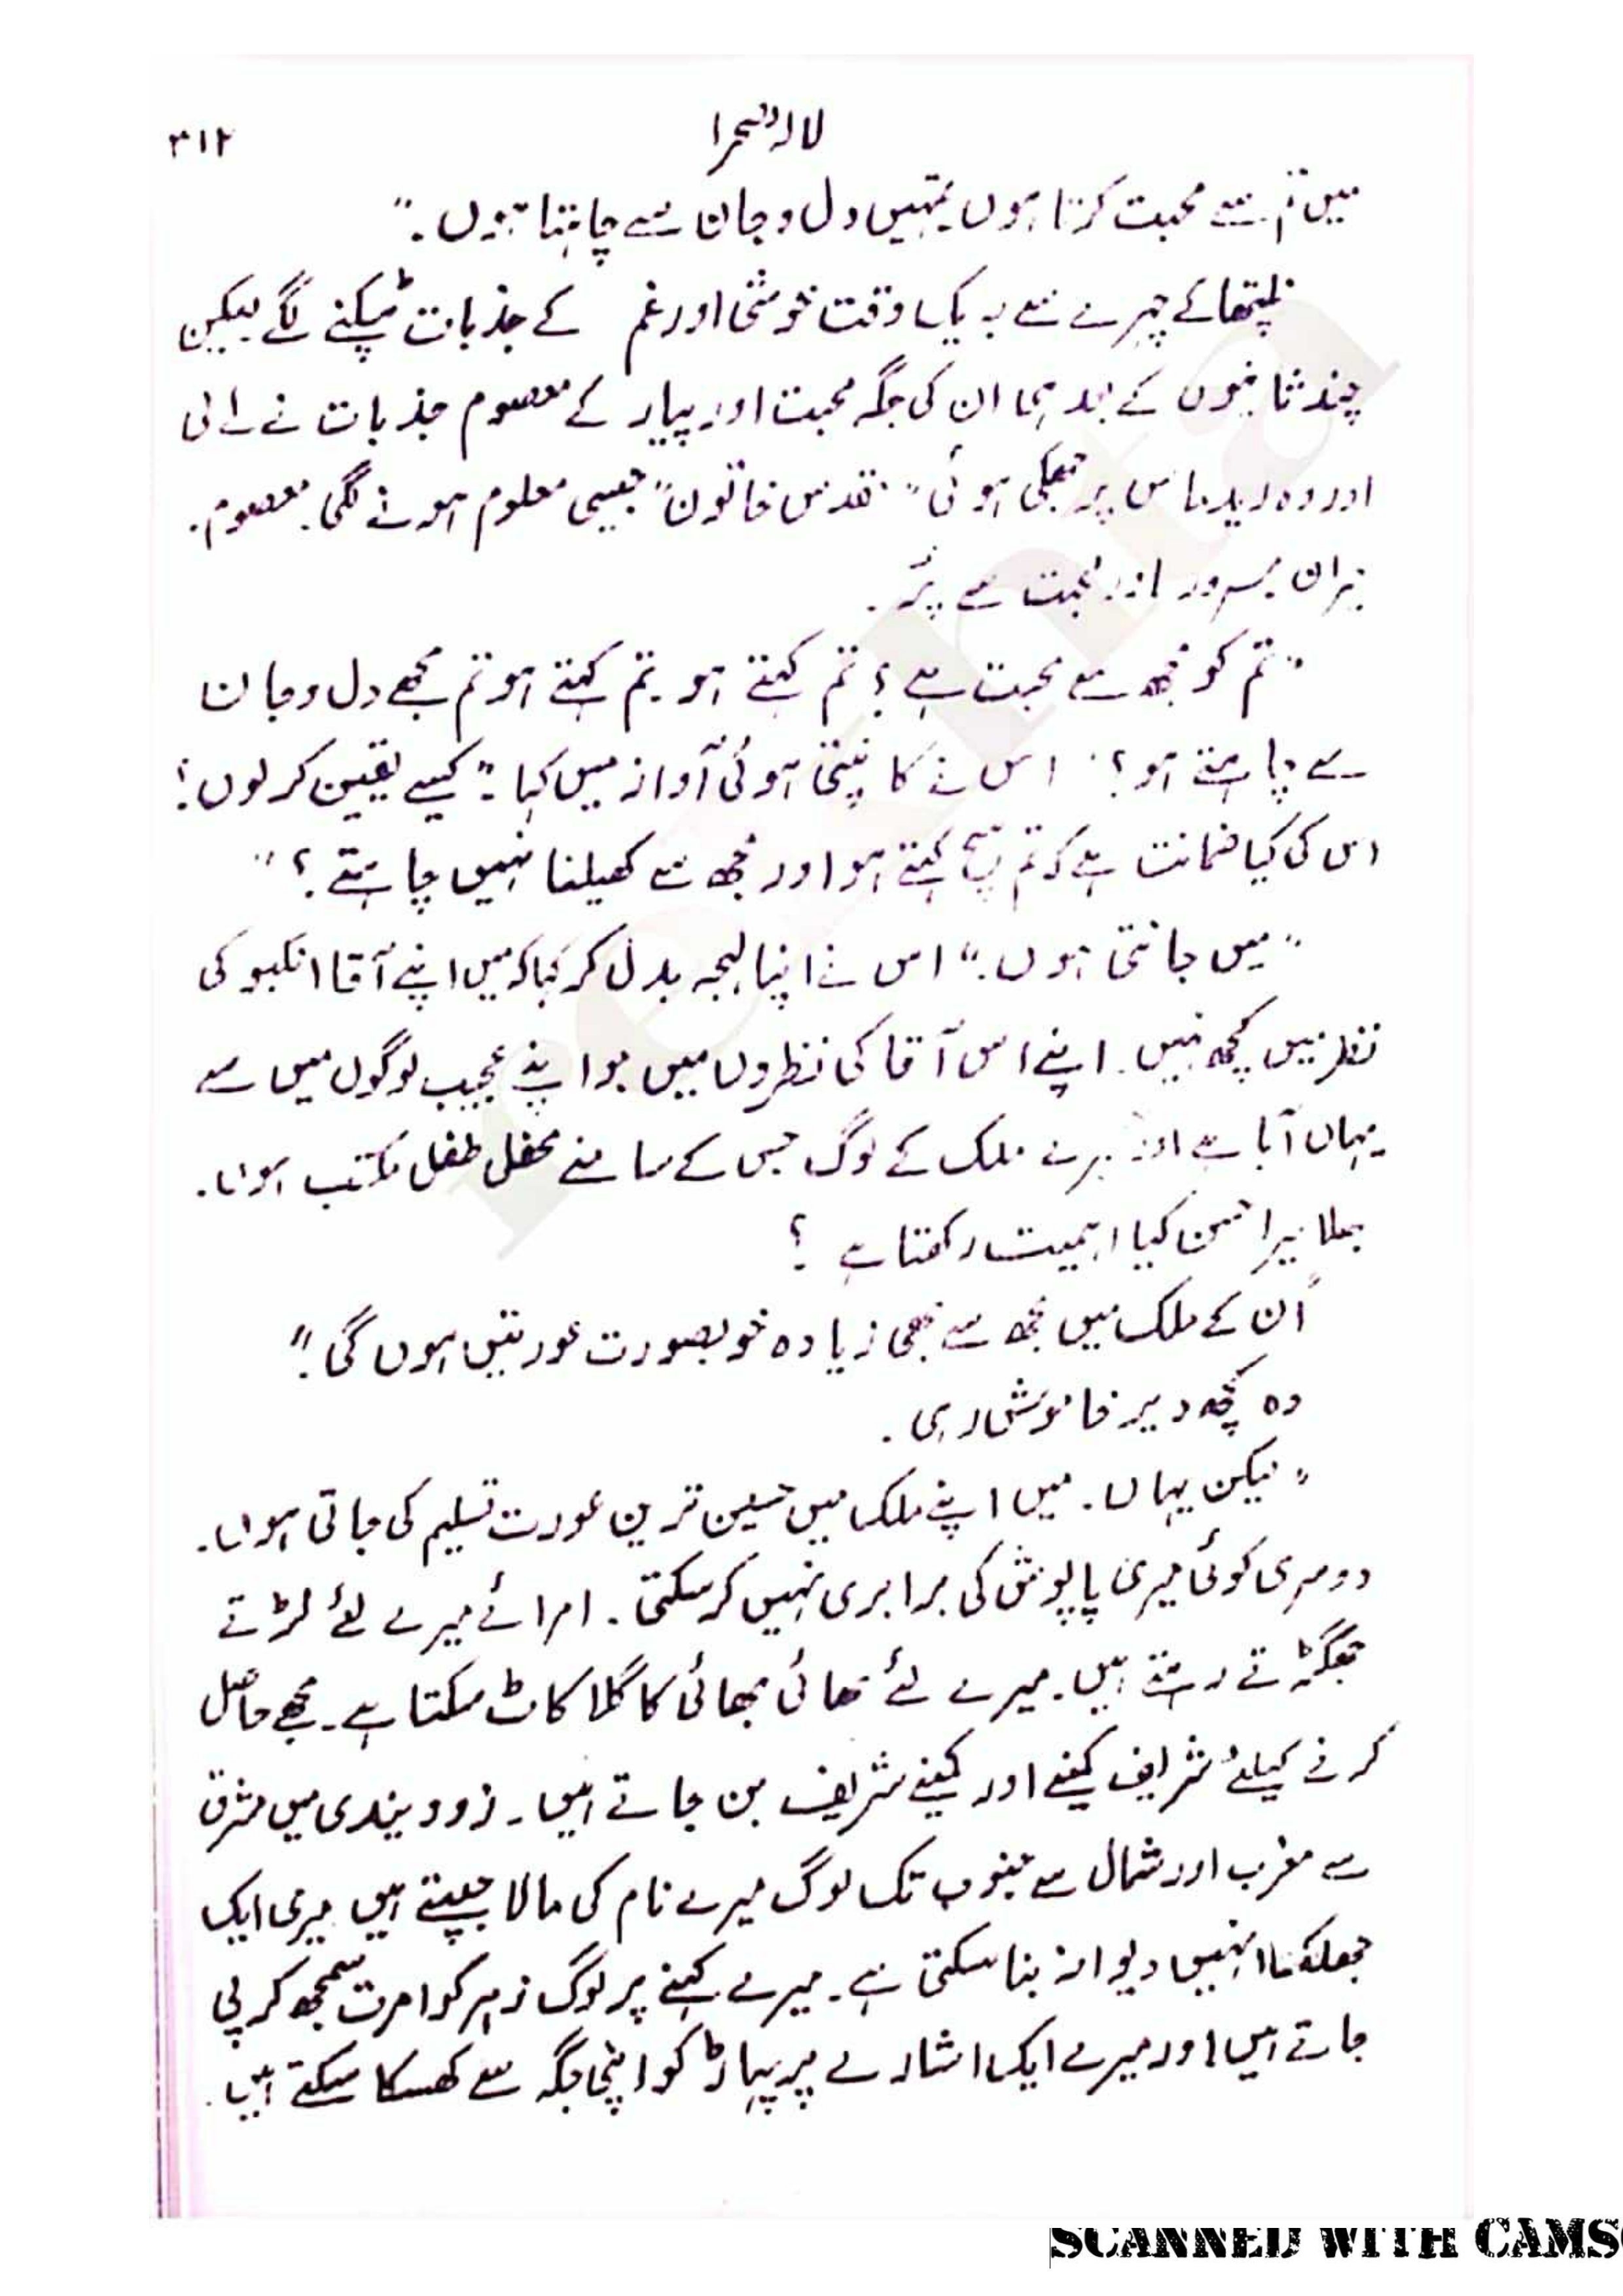 لالہ صحرا
۳۱۲
میں تم سے محبت کرتا ہوں تمہیں دل و جان سے چاہتا ہوں۔"
نلپتھا کے چہرے سے بہ یک وقت خوشی اور غم کے جذبات ٹپکنے لگے لیکن
چند ثانیوں کے بعد ہی ان کی جگہ محبت اور پیار کے معصوم جذبات نے لے لی
اور وہ لیدناس پر جھکی ہوئی "مقدس خاتون" جیسی معلوم ہونے لگی۔ معصوم۔
مسرور اور محبت سے پُر۔
"تم کو مجھ سے محبت ہے؟ تم کہتے ہو۔ تم کہتے ہو تم مجھے دل و جان
سے چاہتے ہو؟" اس نے کانپتی ہوئی آواز میں کہا "کیسے یقین کر لوں؟
اس کی کیا ضمانت ہے کہ تم سچ کہتے ہو اور مجھ سے کھیلنا نہیں چاہتے؟"
"میں جانتی ہوں۔" اس نے اپنا لہجہ بدل کر کہا کہ میں اپنے آقا انکبو کی
نظر میں کچھ نہیں۔ اپنے اس آقا کی نظروں میں جو اپنے عجیب لوگوں میں سے
یہاں آیا ہے اور میرے ملک کے لوگ جس کے سامنے محض طفل مکتب ہوں۔
بھلا میرا حسن کیا اہمیت رکھتا ہے ؟
اُن کے ملک میں مجھ سے بھی زیادہ خوبصورت عورتیں ہوں گی۔"
وہ کچھ دیر خاموش رہی۔
"لیکن یہاں۔ میں اپنے ملک میں حسین ترین عورت تسلیم کی جاتی ہوں۔
دوسری کوئی میری پاپوش کی برابری نہیں کر سکتی۔ امرائے میرے لئے لڑتے
جھگڑتے رہتے ہیں۔ میرے لئے بھائی بھائی کا گلا کاٹ سکتا ہے۔ مجھے حاصل
کرنے کیلئے شریف کمینے اور کمینے شریف بن جاتے ہیں۔ زوویندی میں مشرق
سے مغرب اور شمال سے جنوب تک لوگ میرے نام کی مالا جپتے ہیں میری ایک
جھلک انہیں دیوانہ بنا سکتی ہے۔ میرے کہنے پر لوگ زہر کو امرت سمجھ کر پی
جاتے ہیں اور میرے ایک اشارے پر پہاڑ کو اپنی جگہ سے کھسکا سکتے ہیں۔
reenta
SCANNED WITH CAMS